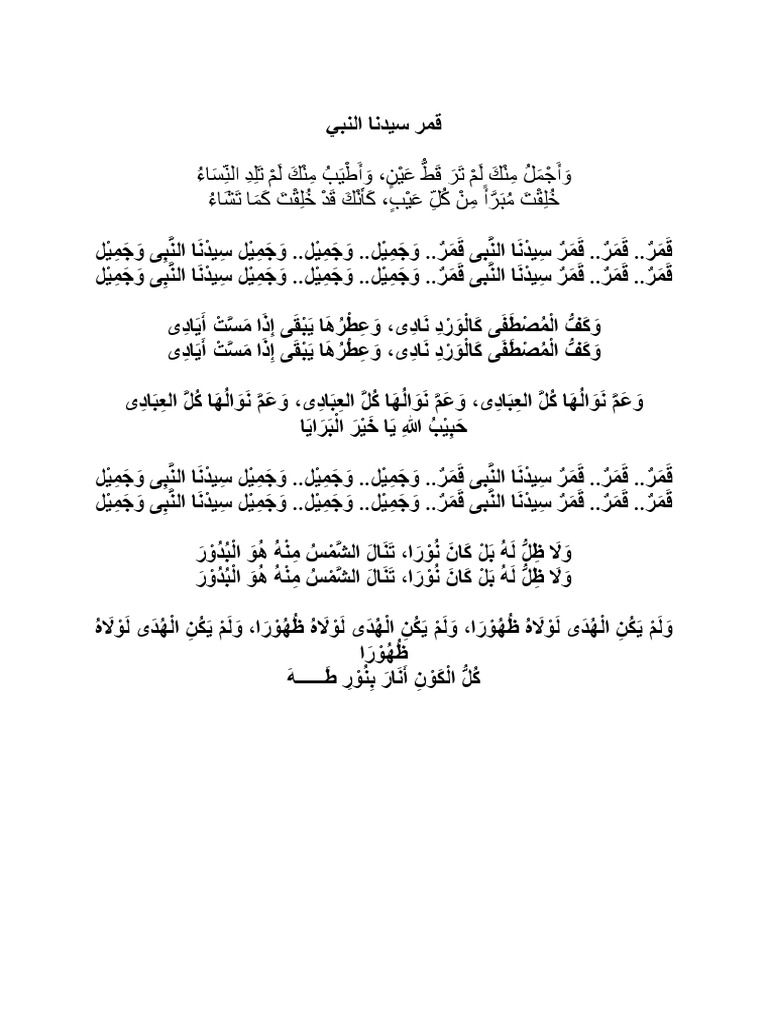 قمر سيدنا النبي
وَأَجْمَلُ مِنْكَ لَمْ تَرَ قَطُّ عَيْنٍ، وَأَطْيَبُ مِنْكَ لَمْ تَلِدِ النِّسَاءُ
خُلِقْتَ مُبَرَّأً مِنْ كُلِّ عَيْبٍ، كَأَنَّكَ قَدْ خُلِقْتَ كَمَا تَشَاءُ
قَمَرٌ.. قَمَرٌ.. قَمَرٌ سِيدْنَا النَّبِى قَمَرٌ.. وَجَمِيْل.. وَجَمِيْل.. وَجَمِيْل سِيدْنَا النَّبِى وَجَمِيْل
قَمَرٌ.. قَمَرٌ.. قَمَرٌ سِيدْنَا النَّبِى قَمَرٌ.. وَجَمِيْل.. وَجَمِيْل.. وَجَمِيْل سِيدْنَا النَّبِى وَجَمِيْل
وَكَفُّ الْمُصْطَفَى كَالْوَرْدِ نَادِى، وَعِطْرُهَا يَبْقَى إِذَا مَسَّتْ أَيَادِى
وَكَفُّ الْمُصْطَفَى كَالْوَرْدِ نَادِى، وَعِطْرُهَا يَبْقَى إِذَا مَسَّتْ أَيَادِى
وَعَمَّ نَوَالُهَا كُلَّ العِبَادِى، وَعَمَّ نَوَالُهَا كُلَّ العِبَادِى، وَعَمَّ نَوَالُهَا كُلَّ العِبَادِى
حَبِيْبُ اللهِ يَا خَيْرَ الْبَرَايَا
قَمَرٌ.. قَمَرٌ.. قَمَرٌ سِيدْنَا النَّبِى قَمَرٌ.. وَجَمِيْل.. وَجَمِيْل.. وَجَمِيْل سِيدْنَا النَّبِى وَجَمِيْل
قَمَرٌ.. قَمَرٌ.. قَمَرٌ سِيدْنَا النَّبِى قَمَرٌ.. وَجَمِيْل.. وَجَمِيْل.. وَجَمِيْل سِيدْنَا النَّبِى وَجَمِيْل
وَلَا ظِلُّ لَهُ بَلْ كَانَ نُوْرَا، تَنَالَ الشَّمْسُ مِنْهُ هُوَ الْبُدُوْرَ
وَلَا ظِلُّ لَهُ بَلْ كَانَ نُوْرَا، تَنَالَ الشَّمْسُ مِنْهُ هُوَ الْبُدُوْرَ
وَلَمْ يَكُنِ الْهُدَى لَوْلَاهُ ظُهُوْرَا، وَلَمْ يَكُنِ الْهُدَى لَوْلَاهُ ظُهُوْرَا، وَلَمْ يَكُنِ الْهُدَى لَوْلَاهُ
ظُهُوْرَا
كُلُّ الْكَوْنِ أَنَارَ بِنُوْرِ طَــــــهَ